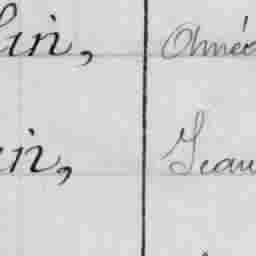 lin, Améd
in, Jean